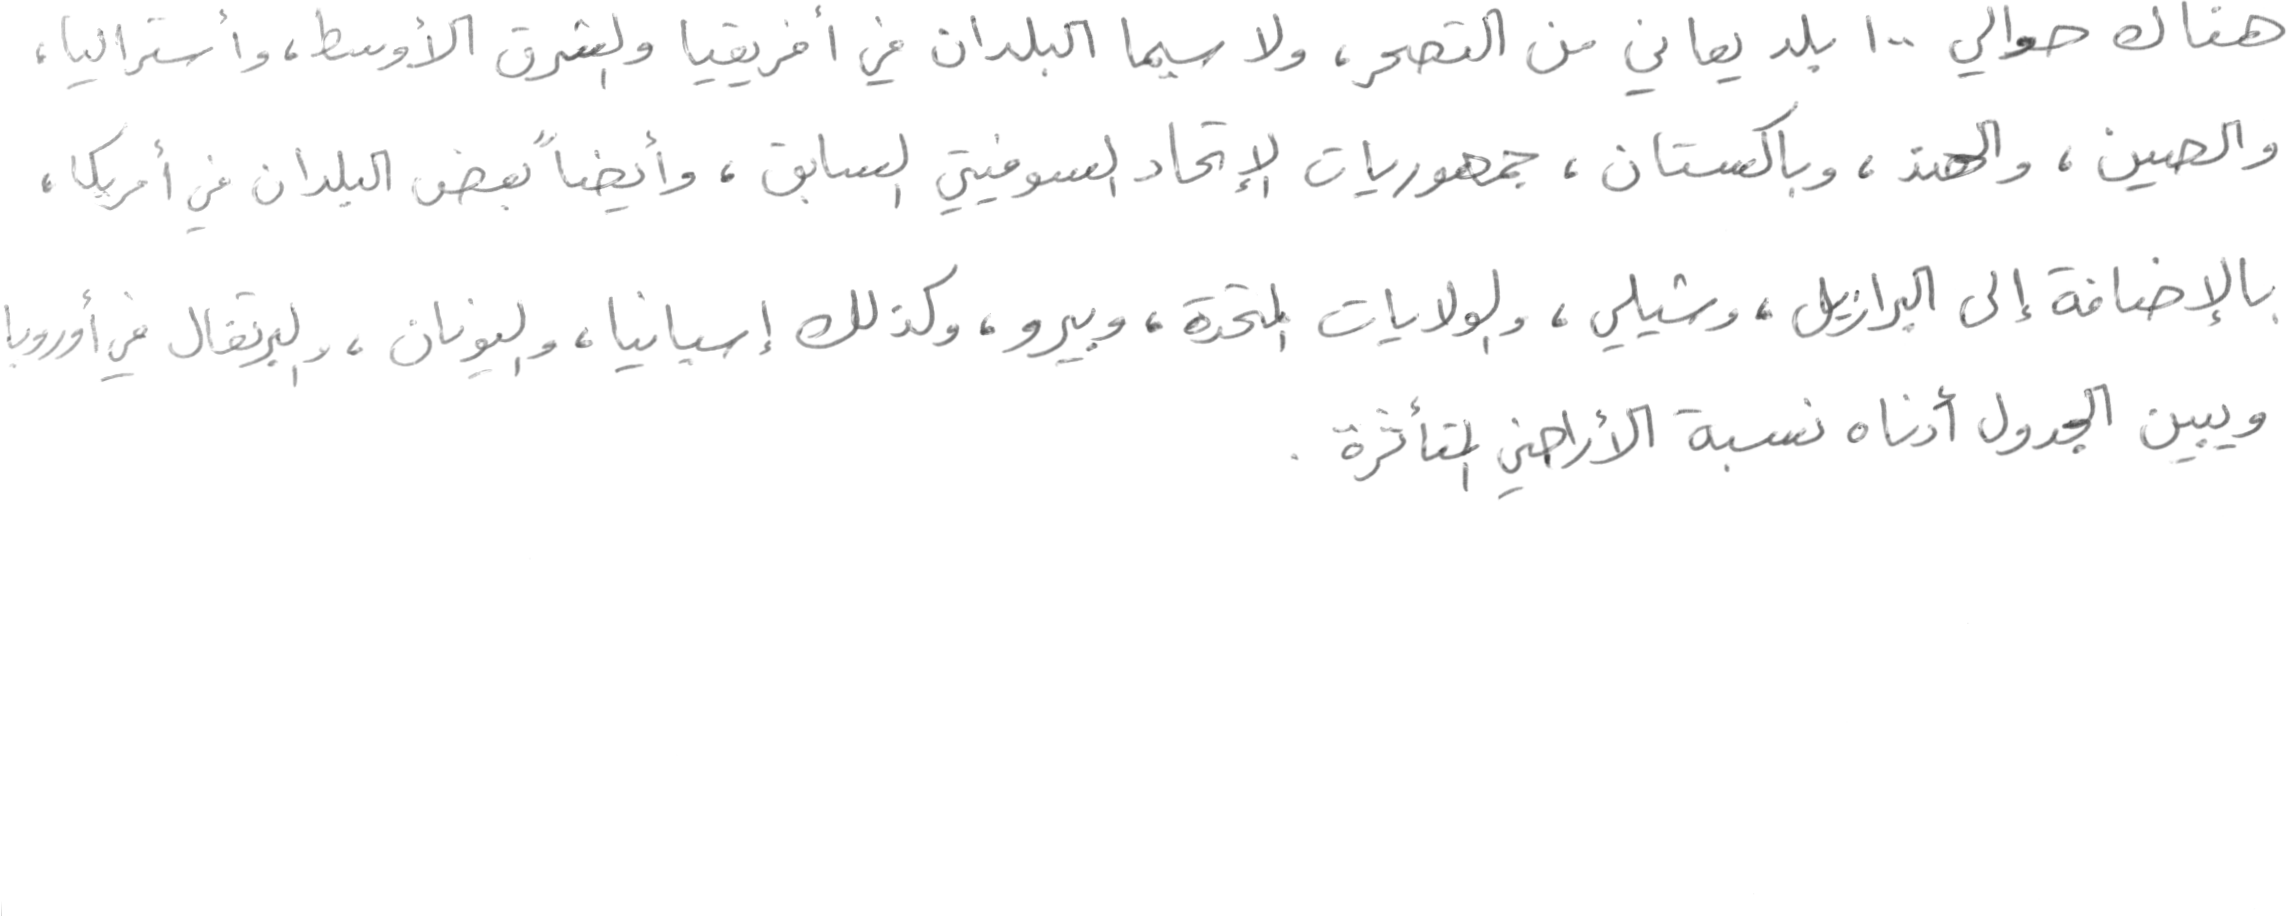 هناك حوالي ١٠٠ بلد يعاني من التصحر، ولا سيما البلدان في أفريقيا والشرق الأوسط، وأستراليا،
والصين، والهند، وباكستان، جمهوريات الإتحاد السوفيتي السابق، وأيضاً بعض البلدان في أمريكا،
بالإضافة إلى البرازيل، وشيلي، والولايات المتحدة، وبيرو، وكذلك إسبانيا، واليونان، والبرتقال في أوروبا
ويبين الجدول أدناه نسبة الأراضي المتأثرة.